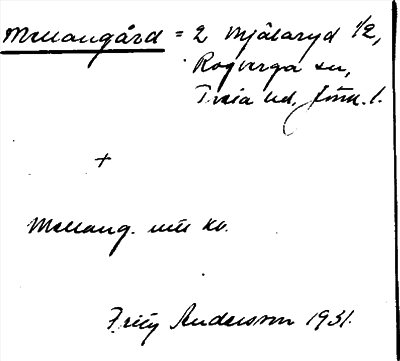 Mellangård = 2 Mjälaryd 1/2,
Rogberga sn,
Tveta hd, Jönk. l.
+
Mellang. utt kv.
Fritz Andersson 1931.